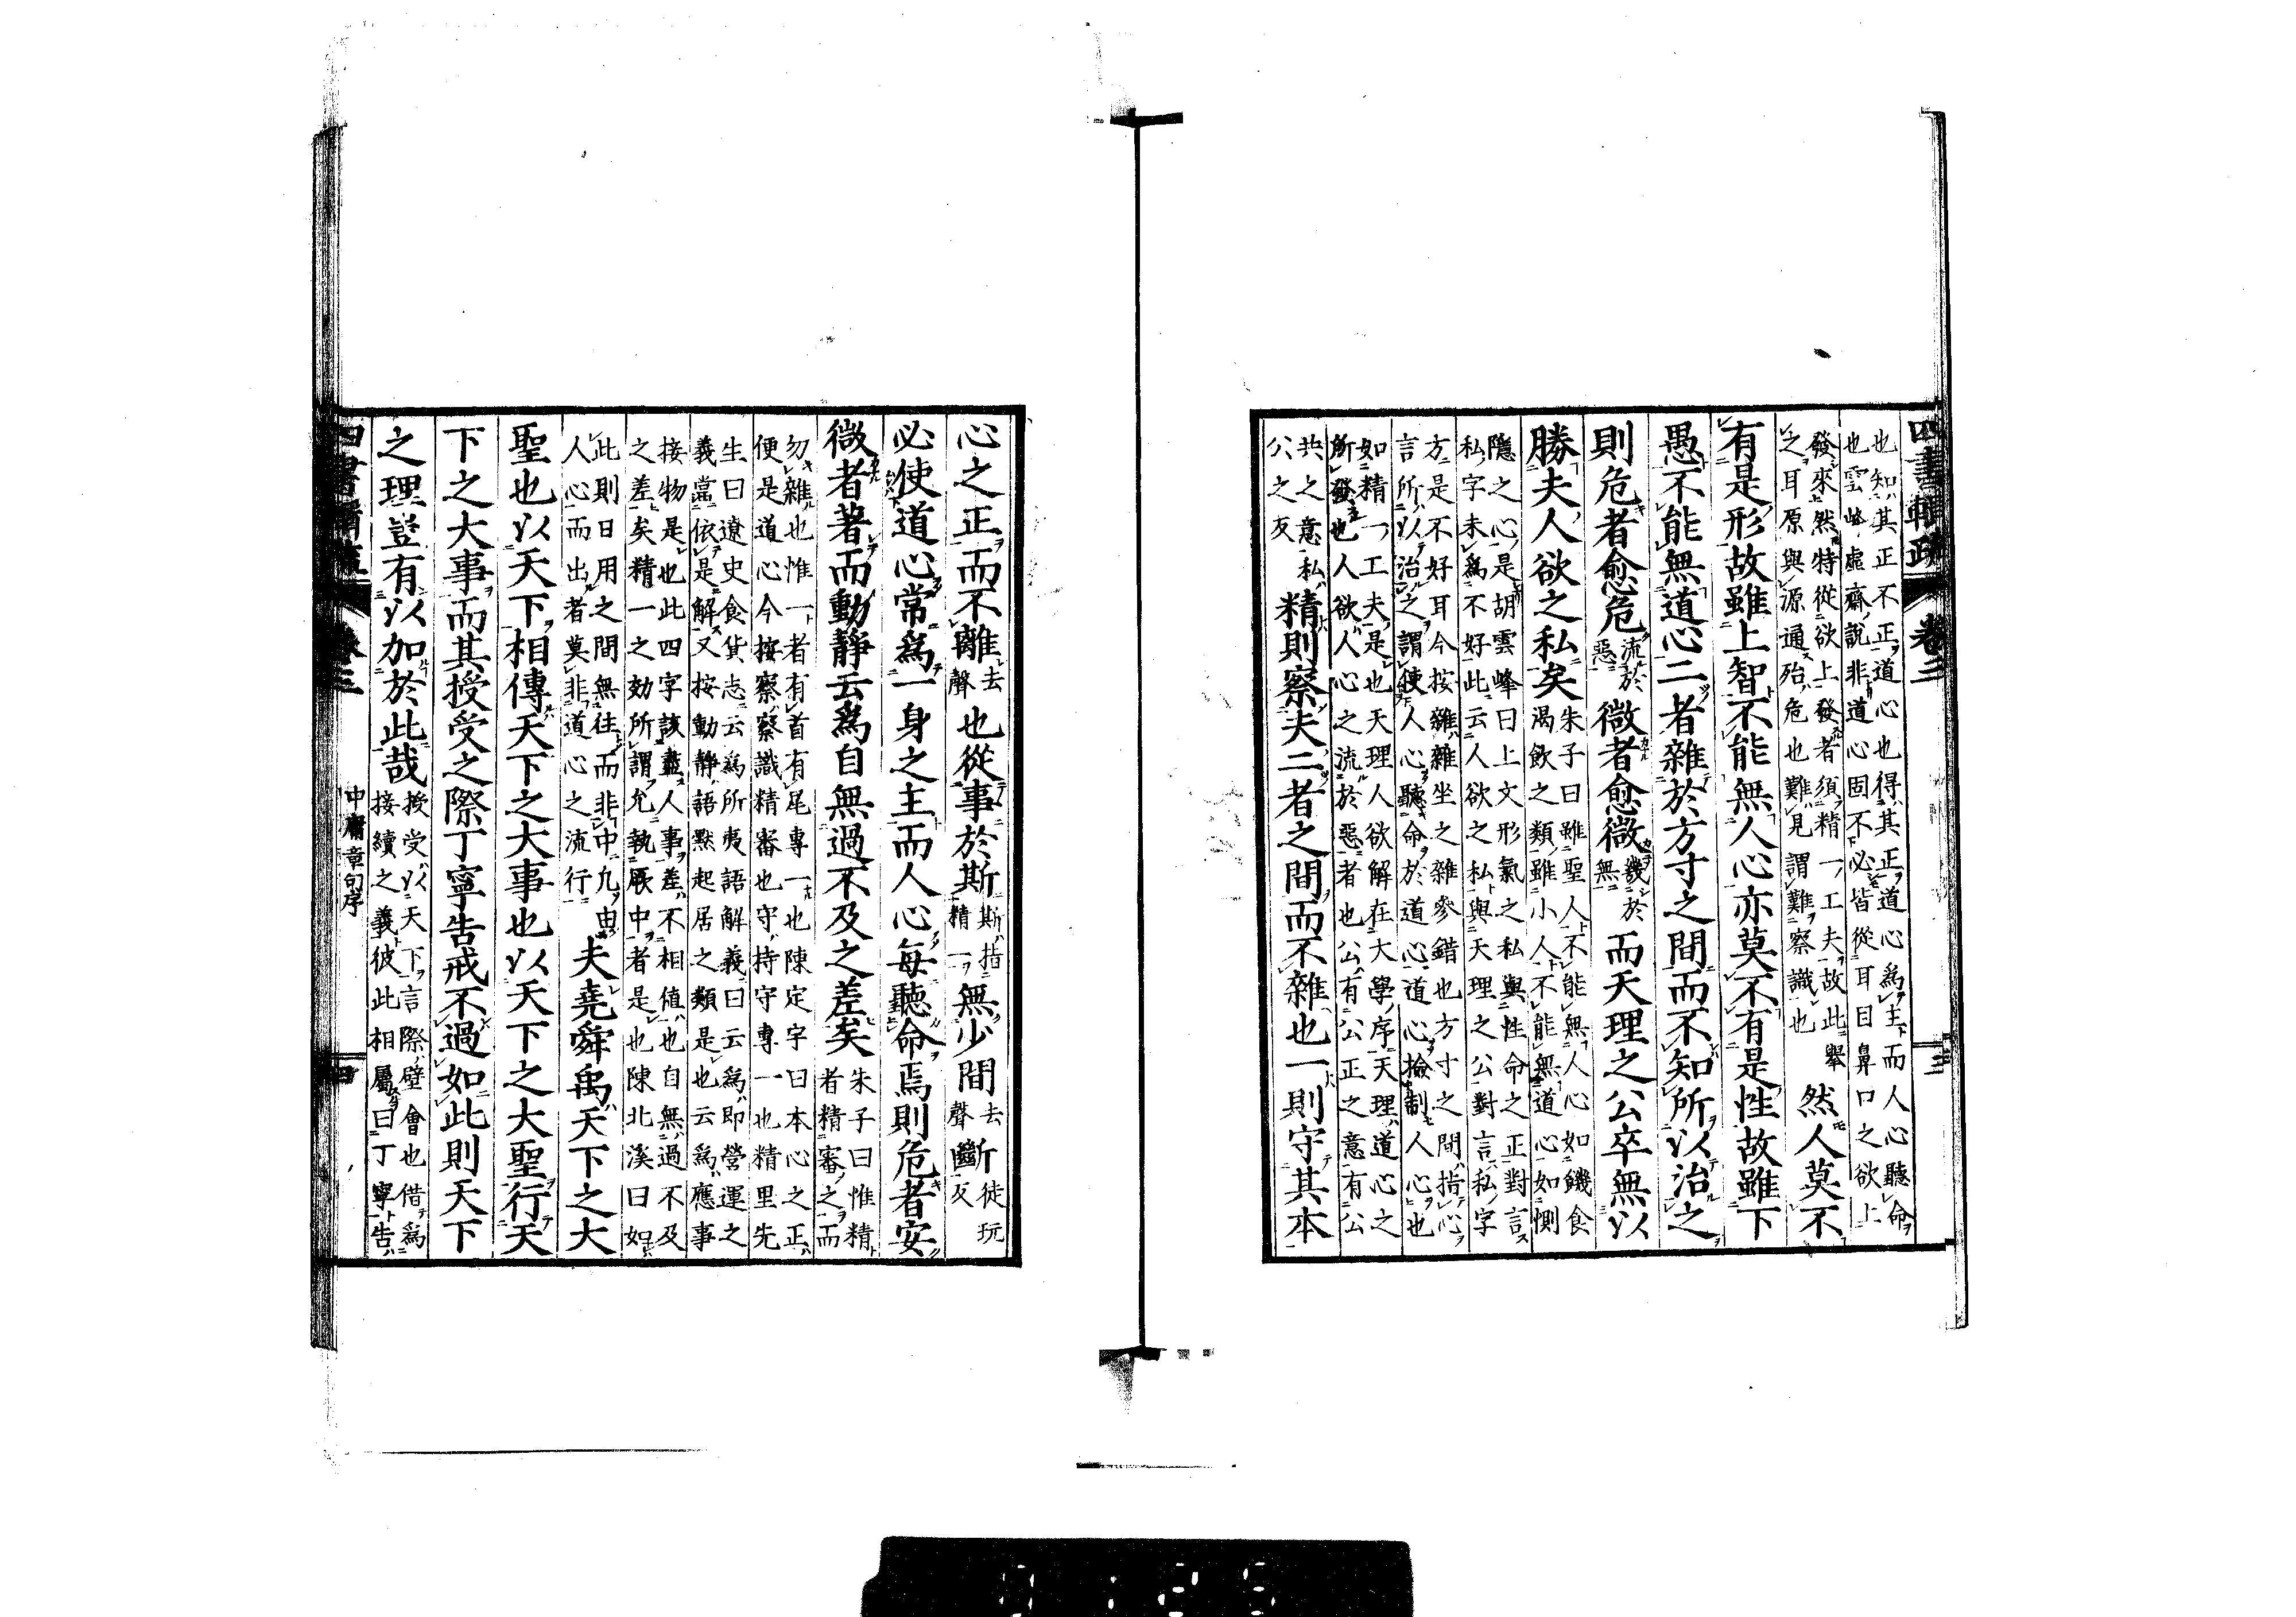 四書輯疏 卷三 三
也知其正不正道心也得其正道心爲主而人心聽命
也雲峰虛齋說非道心固不必皆從耳目鼻口之欲上
發來然特從欲上發者須精一工夫故此舉
之耳原與源通殆危也難見謂難察識也
然人莫不
有是形故雖上智不能無人心亦莫不有是性故雖下
愚不能無道心二者雜於方寸之間而不知所以治之
則危者愈危
流於
惡
微者愈微
幾於
無
而天理之公卒無以
勝夫人欲之私矣
朱子曰雖聖人不能無人心如饑食
渴飲之類雖小人不能無道心如惻
隱之心是胡雲峰曰上文形氣之私與性命之正對言
私字未爲不好此云人欲之私與天理之公對言私字
方是不好耳今按雜雜坐之雜參錯也方寸之間指心
言所以治之謂使人心聽命於道心道心撿制人心也
如精一工夫是也天理人欲解在大學序天理道心之
所發也人欲人心之流於惡者也公有公正之意有公
共之意私
公之反
精則察夫二者之間而不雜也一則守其本
心之正而不離
去
聲
也從事於斯
斯指
精一
無少間
去
聲
斷
徒玩
反
必使道心常爲一身之主而人心每聽命焉則危者安
微者著而動靜云爲自無過不及之差矣
朱子曰惟精
者精審之而
勿雜也惟一者有首有尾專一也陳定宇曰本心之正
便是道心今按察察識精審也守持守專一也精里先
生曰遼史食貨志云爲所夷語解義曰云爲即營運之
義當依是解又按動靜語默起居之類是也云爲應事
接物是也此四字該盡人事差不相値也自無過不及
之差矣精一之効所謂允執厥中者是也陳北溪曰如
此則日用之間無往而非中凢由
人心而出者莫非道心之流行
夫堯舜禹天下之大
聖也以天下相傳天下之大事也以天下之大聖行天
下之大事而其授受之際丁寧告戒不過如此則天下
之理豈有以加於此哉
授受以天下言際壁會也借爲
接續之義彼此相屬曰丁寧告
四書輯疏 卷三 中庸章句序 四